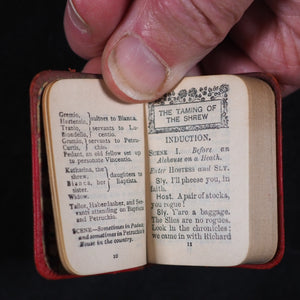 Gremio,
Hortensio, } suitors to Bianca.
Tranio, } servants to Lu-
Biondello, } centio.
Grumio, } servants to Petru-
Curtis, } chio.
Pedant, an old fellow set up
to personate Vincentio.
Katharina, the
shrew, } daughters to
Bianca, her } Baptista.
sister,
Widow.
Tailor, Haberdasher, and Ser-
vants attending on Baptista
and Petruchio.
SCENE—Sometimes in Padua;
and sometimes in Petruchio's
House in the country.
10
THE TAMING OF
THE SHREW
INDUCTION.
SCENE I. Before an
Alehouse on a Heath.
Enter HOSTESS and SLY.
Sly. I'll pheese you, in
faith.
Host. A pair of stocks,
you rogue!
Sly. Y'are a baggage.
The Slies are no rogues.
Look in the chronicles:
we came in with Richard
11